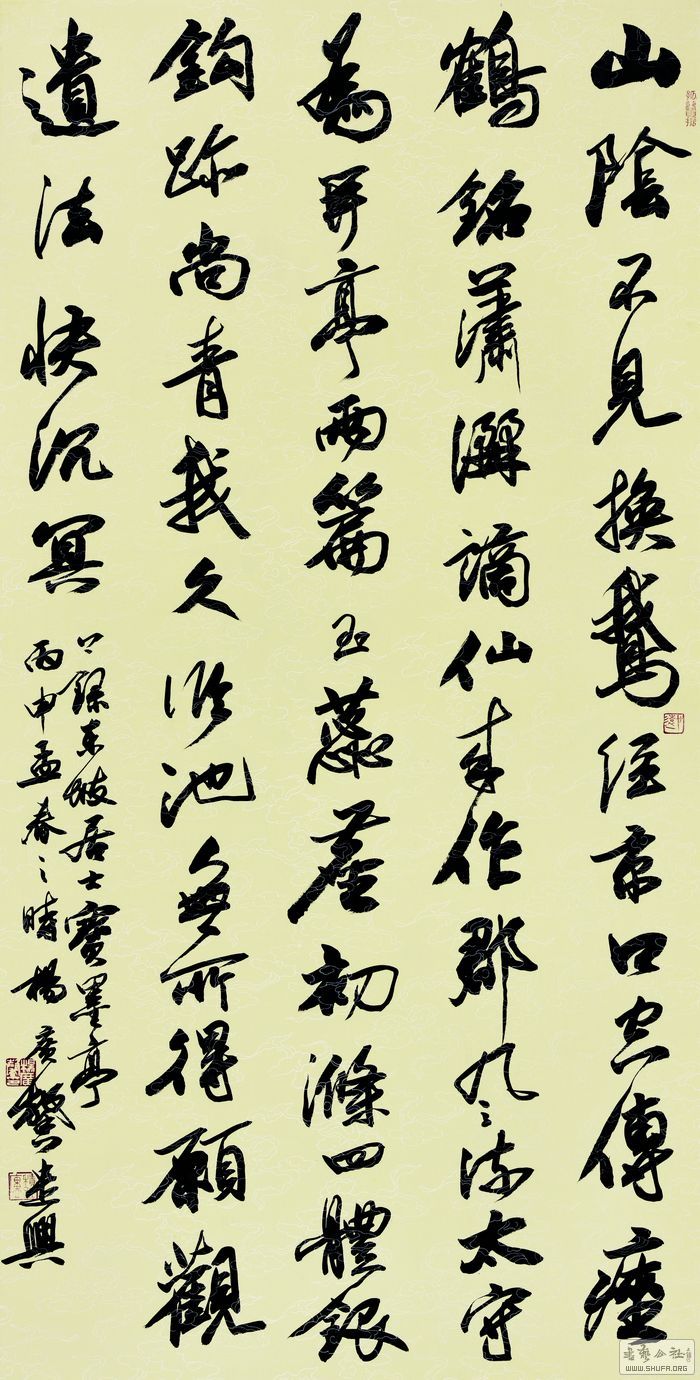 山陰不見換鵝經京口空傳瘞
鶴銘瀟灑謫仙來作郡風流太守
為開亭兩篇玉蕊塵初滌四體銀
鈎跡尚青我久臨池無所得願觀
遺法快沉冥
上錄東坡居士寶墨亭
丙申孟春之時楊廣馨遣興
書藝公社
WWW.SHUFA.ORG